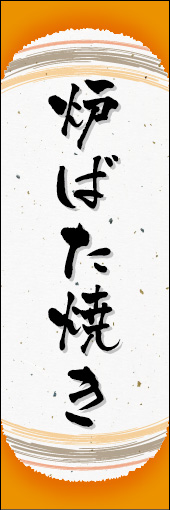 炉ばた焼き